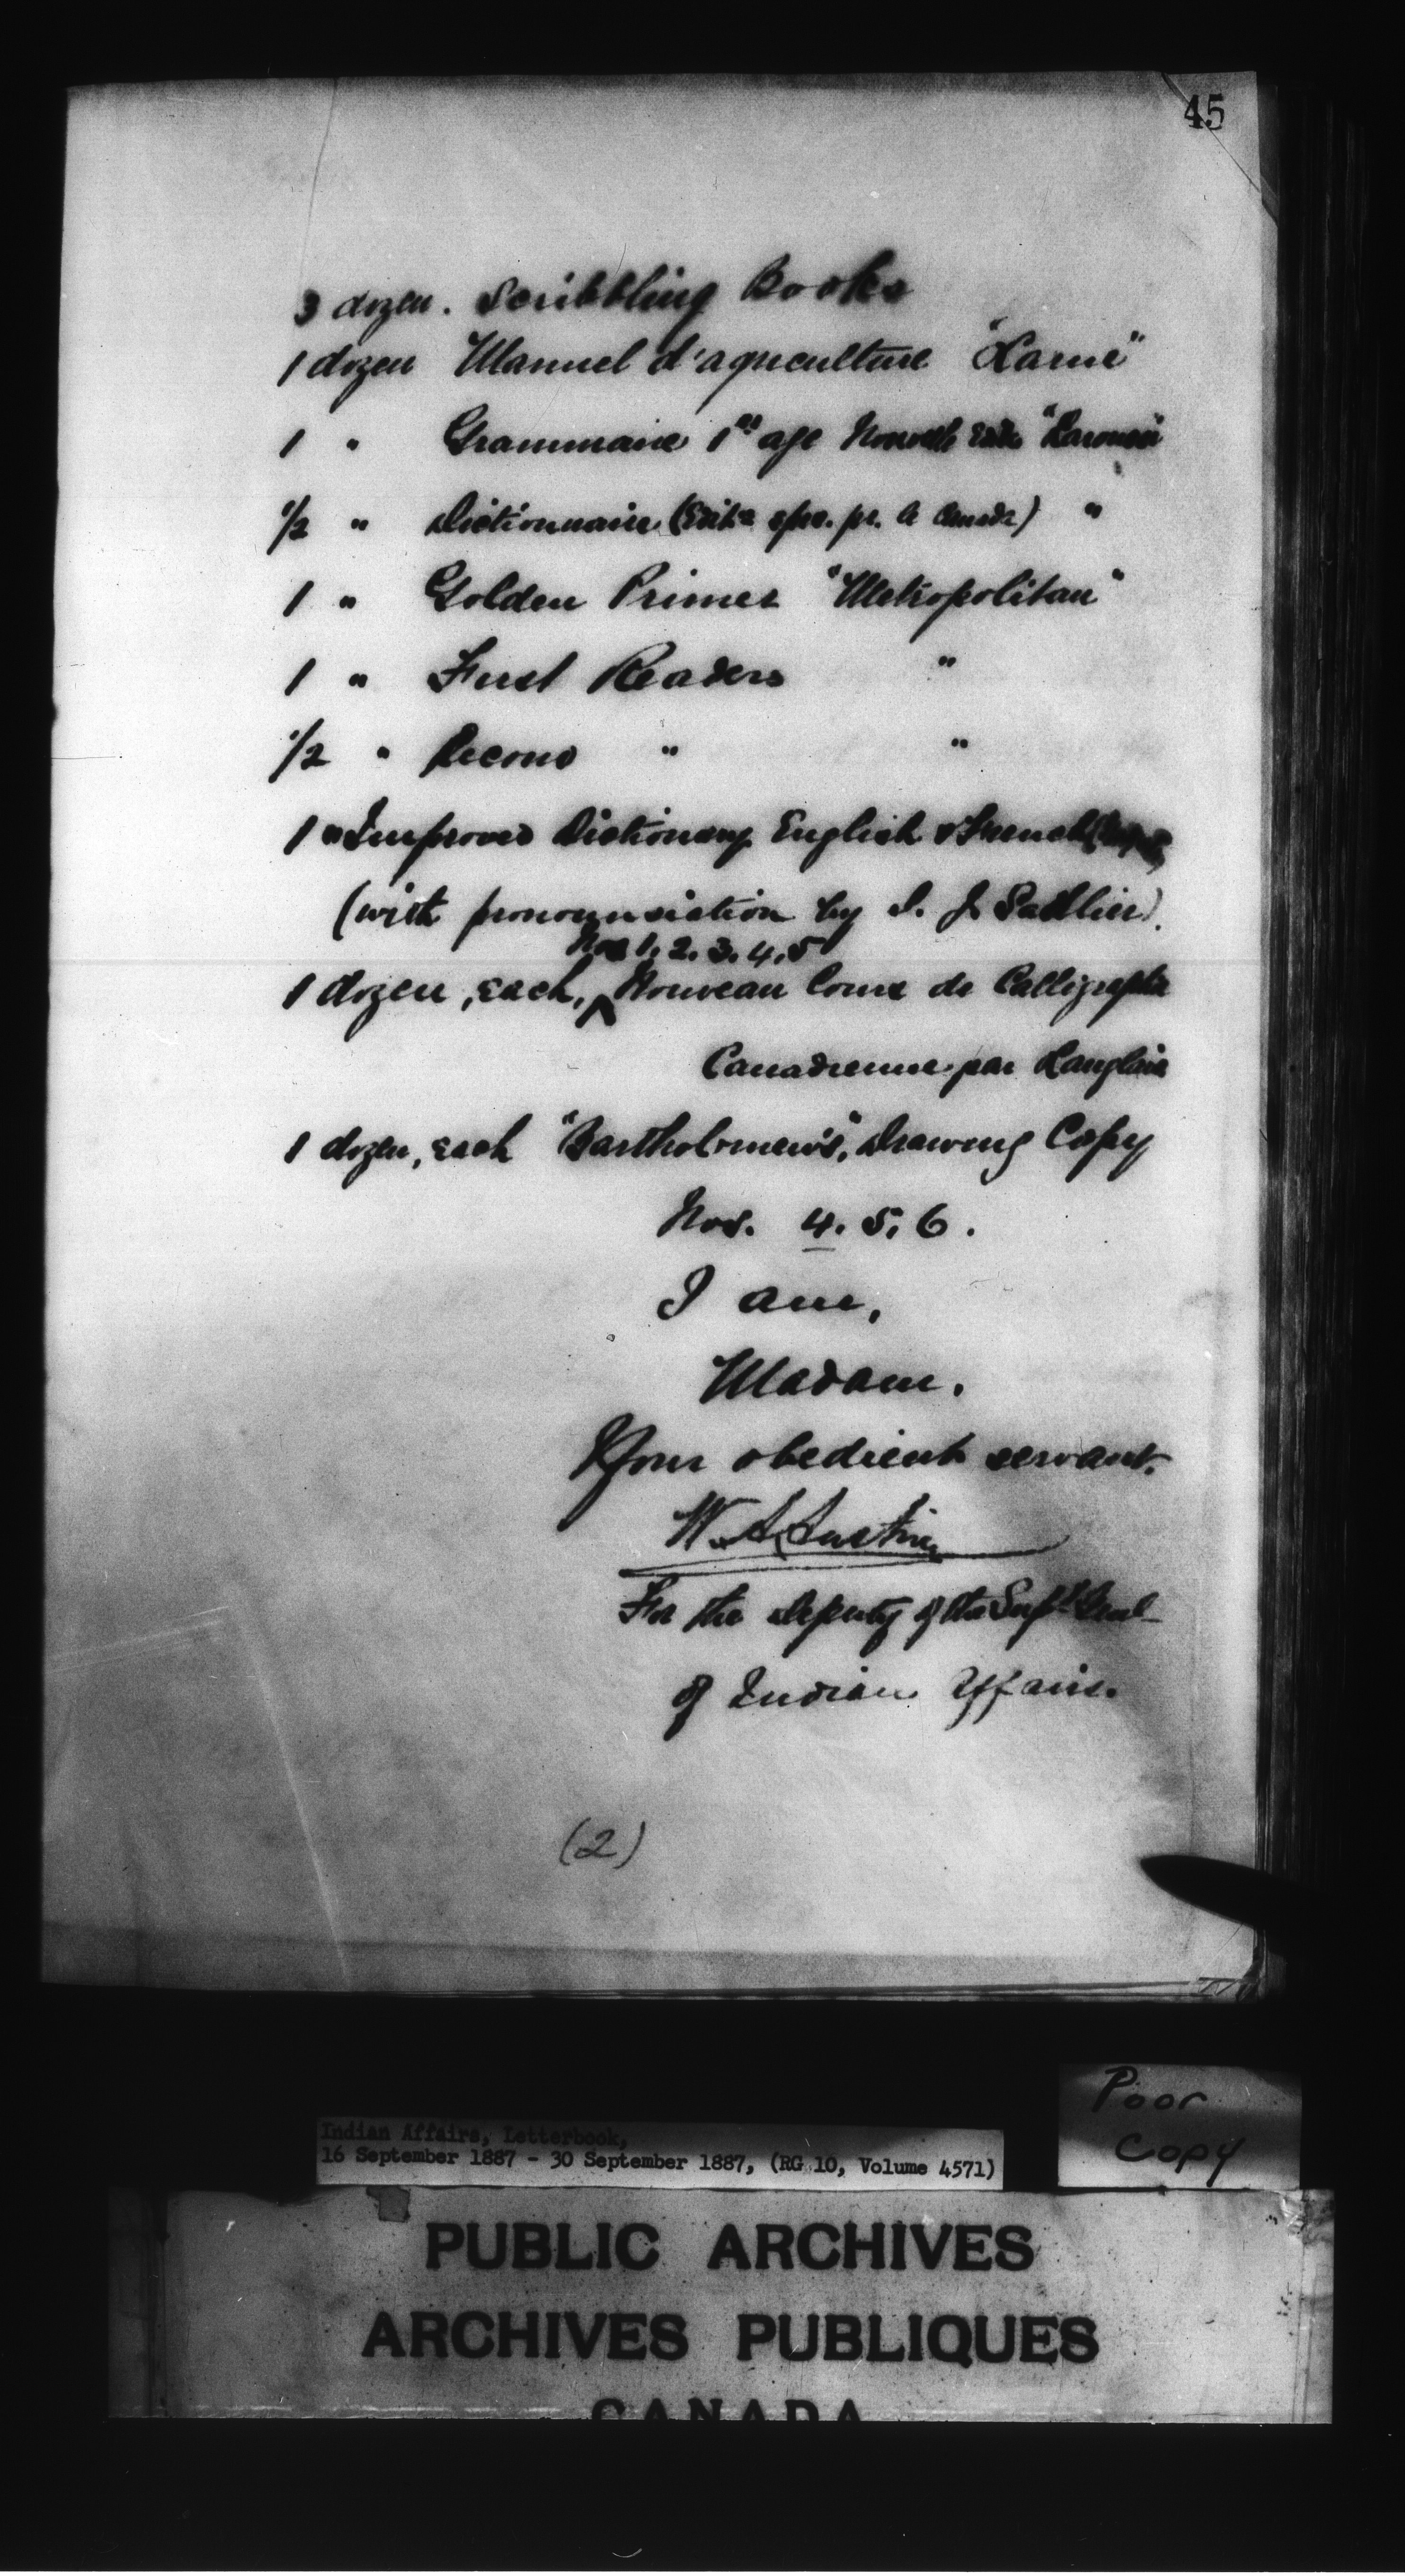 45
3 dozen. Scribbling Books
1 dozen Manuel d'agriculture "Larue"
1 " Grammaire 1er age Nouvelle Edit. "Larousse"
1/2 " Dictionnaire (Edit. spe. pr. le Canada) "
1 " Golden Primer "Metropolitan"
1 " First Readers "
1/2 " Second " "
1 " Improved Dictionary English & French
(with pronounciation by D. J. Sadlier).
Nos 1. 2. 3. 4. 5
1 dozen, each, ^ Nouveau Cours de Calligraphie
Canadienne par Langlais
1 dozen, each "Bartholomew's", Drawing Copy
Nos. 4. 5. 6.
I am,
Madam.
Your obedient servant.
W. A. Austin
For the Deputy of the Supt. Genl
of Indian Affairs.
(2)
Poor
Copy
Indian Affairs, Letterbook,
16 September 1887 - 30 September 1887, (RG 10, Volume 4571)
PUBLIC ARCHIVES
ARCHIVES PUBLIQUES
CANADA